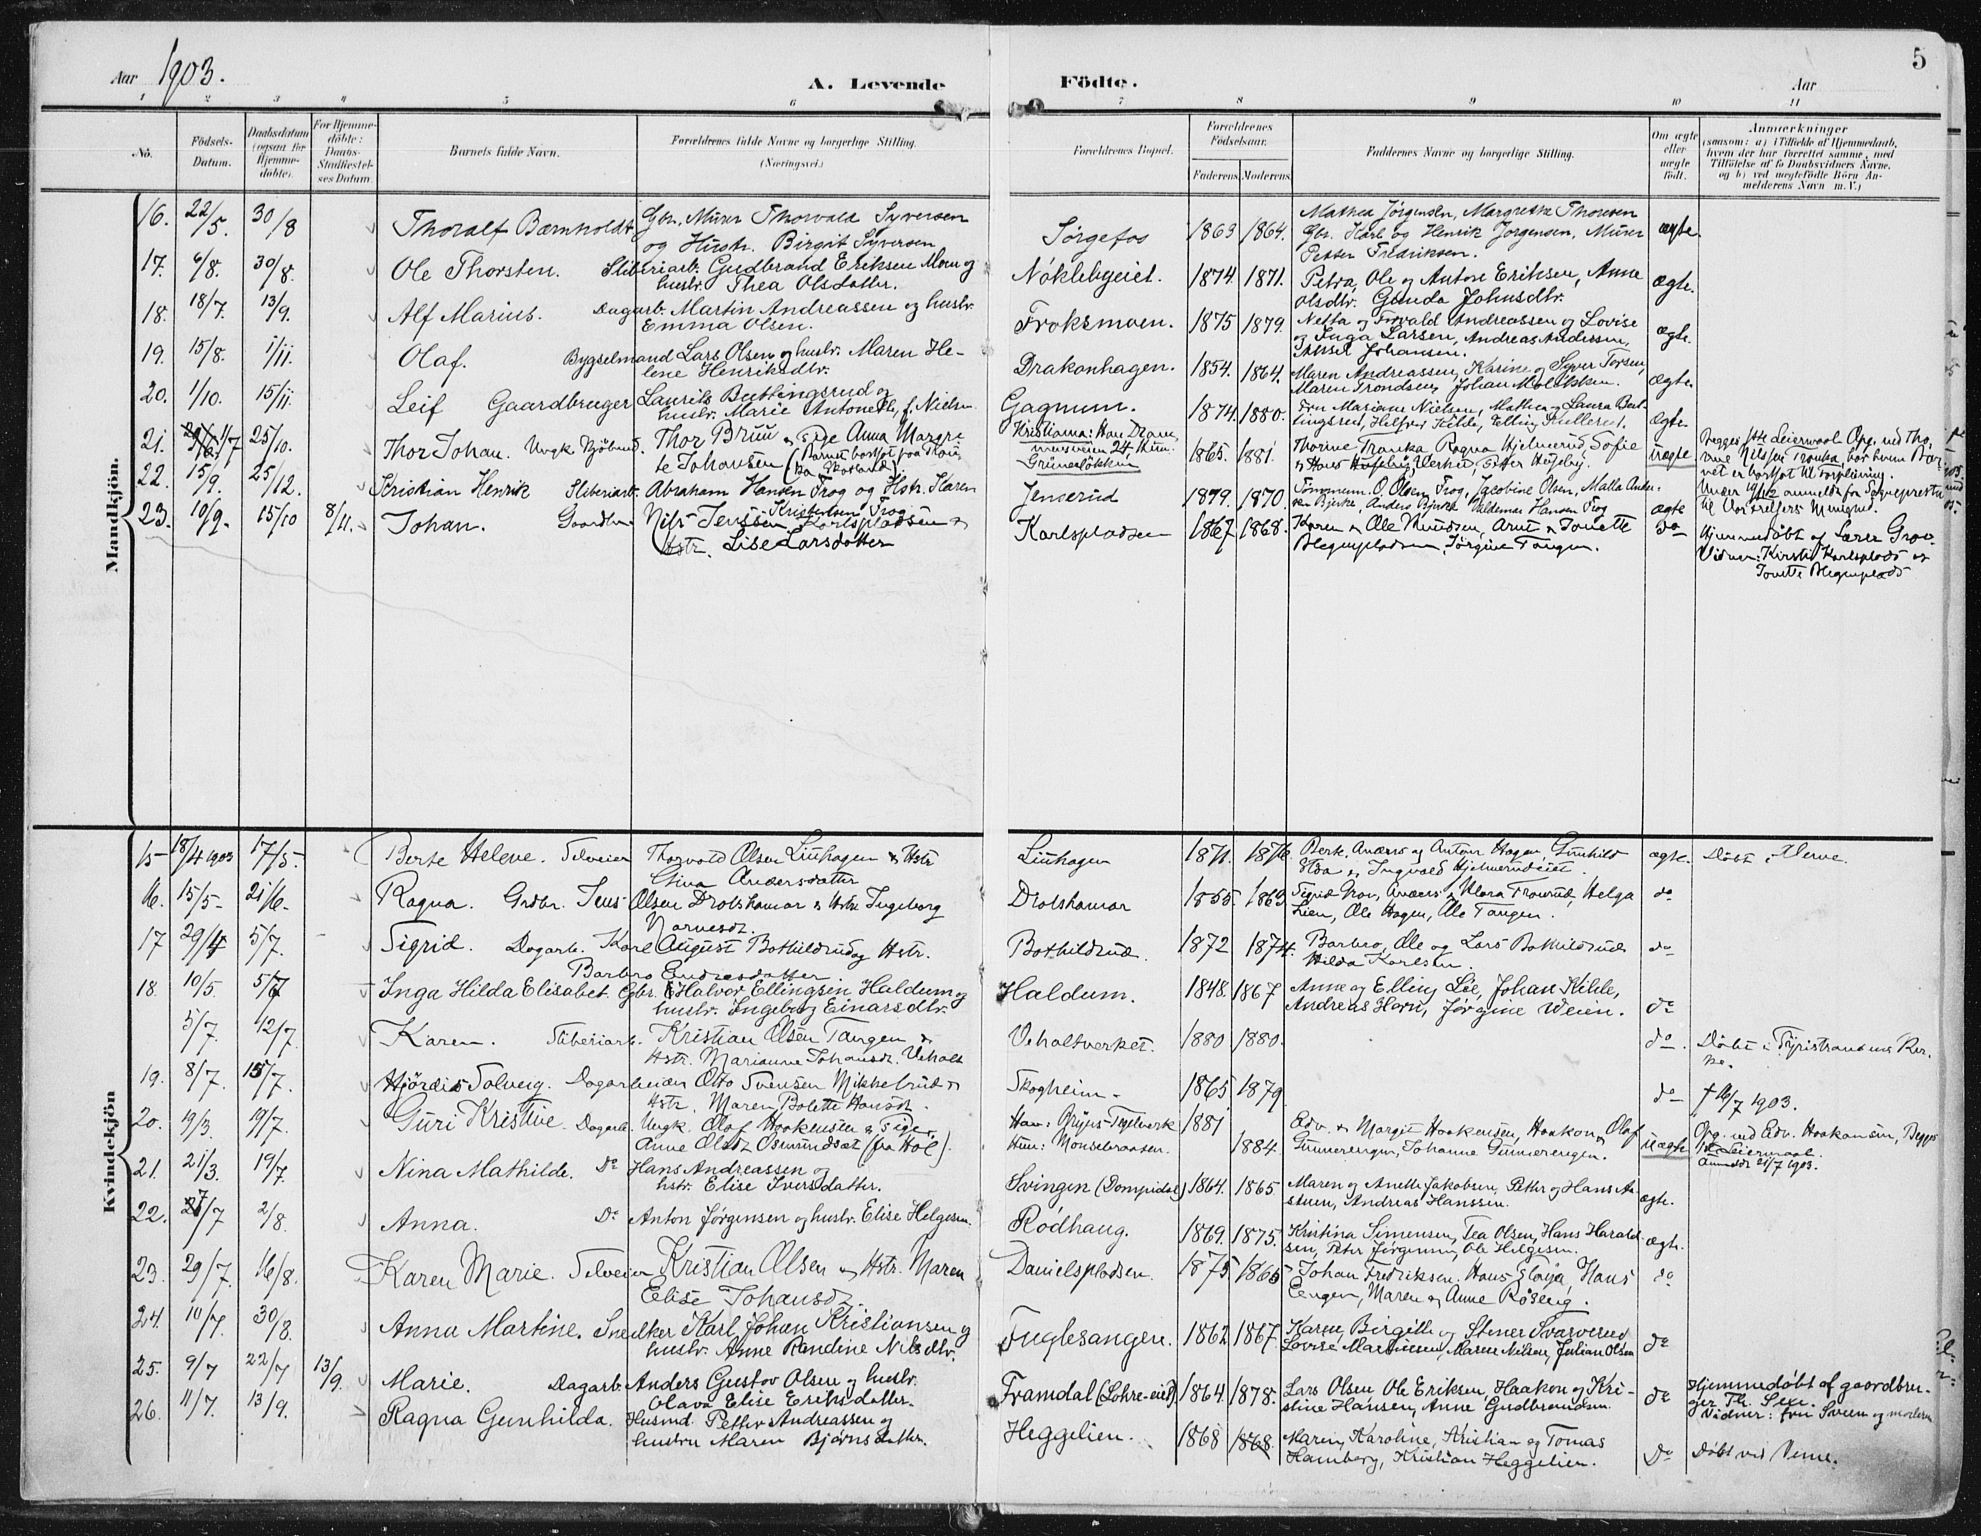 Aar 1903.
A. Levende Födte.
Aar
5
1 2 3 4 5 6 7 8 9 10 11
No.
Födsels-
Datum.
Daabsdatum
(ogsaa for
Hjemme-
döbte).
For Hjemme-
döbte:
Daabs-
Stadfæstel-
ses Datum.
Barnets fulde Navn.
Forældrenes fulde Navne og borgerlige Stilling.
(Næringsvei.)
Forældrenes Bopæl.
Forældrenes
Födselsaar.
Faderens. Moderens.
Faddernes Navne og borgerlige Stilling.
Om ægte
eller
uægte
födt.
Anmærkninger
(saasom: a) i Tilfælde af Hjemmedaab,
hvem der har forrettet samme, med
Tilföielse af to Daabsvidners Navne,
og b) ved uægtefödte Börn An-
melderens Navn m. V.)
Mandkjön.
16. 22/5. 30/8 Thoralf Bærnholdt. Gbr. Murer Thorvald Syversen
og Hustr. Birgit Syversen
Sørgefos 1863 1864. Mathea Jørgensen, Margrethe Thoresen
Gbr. Karl og Henrik Jørgensen, Murer
Petter Fredriksen. ægte.
17. 6/8. 30/8. Ole Thorsten. Sliberiarb. Gudbrand Eriksen Moen og
hustr. Thea Olsdatter.
Nøklebyeiet. 1874. 1871. Petra, Ole og Anton Eriksen, Anne
Olsdtr. Gunda Johnsdtr. ægte.
18. 18/7. 13/9. Alf Marius. Dagarb. Martin Andreassen og hustr.
Emma Olsen.
Froksmoen. 1875 1879. Netta og Torvald Andreassen og Lovise
og Inga Larsen, Andreas Andersen,
Aksel Johansen. ægte.
19. 15/8. 1/11. Olaf. Bygselmand Lars Olsen og hustr. Maren He-
lene Henriksdtr.
Drakonhagen. 1854. 1864. Maren Andreassen, Karine og Syver Torsen,
Maren Trondsen, Johan Molökken. ægte.
20. 1/10. 15/11. Leif Gaardbruger Laurits Buttingsrud og
hustr. Marie Antonette, f. Nielsen
Gagnum. 1874. 1880. Fru Mariane Nielsen, Mathea og Laura But-
tingsrud, Helfred Kilde, Elling Hullerest. ægte.
21. 1/7 25/10. Thor Johan. Ungk. Thor Bruu og Pige Anna Margre
te Johansen (Barnet bortsat fra
Kristiania: Han Dram-
mensveien 24, Hun:
Grünerløkken 1865. 1881. Thorine Tranka Ragna Hjelmerud, Sofie
og Hans Huseby, Petter Huseby. uægte
Begges 1ste Leiermaal. Opg. ved Tho-
rine Nilsen Tranka, hos hvem Bar-
net er bortsat til Forpleining.
Under anmeldt for Sognepresten
til Vor Frelsers Menighed.
22. 15/9. 25/12. Kristian Henrik Sliberiarb. Abraham Hansen Frog og Hstr. Karen
Kristensen Frog
Jenserud 1879. 1870. Tømmerm. O. Olsen Frog, Jacobine Olsen, Malla Ander-
sen Bjerke, Anders Bjerke Valdemar Hansen Frog ægte
23. 10/9. 15/10 8/11. Johan. Gaardbr. Nils Jenssen Karlspladsen og
Hstr. Lise Larsdatter
Karlspladsen 1867 1868. Karen og Ole Knudsen, Arne og Tonette
Blegenpladsen, Jørgine Tangen. do
Hjemmedøbt af Lærer Grov.
Vidner: Kirsti Karlsplads og
Tonette Blegenplads
Kvindekjön
15 18/4 1903 17/5. Berte Helene. Selveier Thorvald Olsen Liuhagen og Hstr
Gina Andersdatter
Liuhagen 1871. 1876. Berte, Anders og Anton Hagen Gunhild
Elda og Ingvald Hjelmerudeiet. ægte. Døbt i Veme.
16. 15/5- 21/6. Ragna. Grdbr. Jens Olsen Drolshamar og Hstr Ingeborg
Narvesdt.
Drolshamar 1855 1863 Sigrid Grov, Anders og Klara Fronrud, Helga
Lien, Ole Hagen, Ole Tangen. do
17 29/4 5/7. Sigrid. Dagarb. Karl August Bothildrud og Hstr.
Barbro Endresdatter
Bothildrud. 1872 1874. Barbro, Ole og Lars Bothildrud
Hilda Karlsen. do
18. 10/5. 5/7 Inga Hilda Elisabet. Gbr. Halvor Ellingsen Haldum og
hustr. Ingeborg Einarsdtr.
Haldum. 1848. 1867 Anne og Elling Lie, Johan Kilde,
Andreas Horn, Jørgine Weien. do
5/7. 12/7. Karen. Sliberiarb. Kristian Olsen Tangen og
Hstr. Marianne Johansdt. Veholt
Veholtverket. 1880 1880. do. Døbt i Tyristrandens Kir-
ke.
19. 8/7. 15/7. Hjördis Solveig. Dagarbeider Otto Svensen Mikkelsrud og
Hstr. Maren Bolette Hansdt.
Skogheim. 1865 1879 do † 16/7 1903.
20. 19/3. 19/7. Guri Kristine. Dagarb. Ungk. Olaf Haakensen og Pige
Anne Olsdt. Osmundsæt (fra Hol).
Han: Bryps Træverk
Hun: Monsebraaten. 1881 1884. Edv. og Margit Haakensen, Haakon og Olaf
Gunnerengen, Johanne Gunnerengen. uægte
Opg. ved Edv. Haakensen, Begges
1ste Leiermaal.
Anmeldt 21/7 1903.
21. 21/3. 19/7. Nina Mathilde. do Hans Andreassen og
hstr. Elise Iversdatter.
Svingen (Dompidal) 1864. 1865 Maren og Anette Jakobsen, Petter og Hans An-
stuen, Andreas Hanssen. ægte.
22. 27/7 2/8. Anna. do Anton Jørgensen og hustr. Elise Helgesen.
Rødhaug. 1869. 1875. Kristina Simensen, Tea Olsen, Hans Harald-
sen, Peter Jørgensen, Ole Helgesen. ægte.
23. 29/7. 16/8. Karen Marie. Selveier Kristian Olsen og Hstr. Maren
Elise Johansdt.
Danielspladsen. 1875 1866 Johan Fredriksen. Hans Eloya, Hans
Eengen, Maren og Anne Røseng. do
24. 10/7. 30/8. Anna Martine. Snedker Karl Johan Kristiansen og
hustr. Anne Randine Nilsdtr.
Fuglesangen. 1862 1867. Karen, Birgitte og Stener Svarverud
Lovise Martinsen, Maren Nilsen, Julian Olsen do
25. 9/7 22/7 13/9. Marie. Dagarb. Anders Gustav Olsen og hustr.
Olava Elise Eriksdatter.
Framdal (Lohre-eiet). 1864. 1878. Lars Olsen, Ole Eriksen, Haakon og Kri-
stine Hansen, Anne Gudbrandsen. do
Hjemmedøbt af gaardbru-
ger Th. Seen.
Vidner: fru Sveen og moderen
26. 11/7. 13/9. Ragna Gunhilda. Husmd. Petter Andreassen og
hustru Maren Bjørnsdatter.
Heggelien. 1868 1868. Maren, Karoline, Kristian og Tomas
Hamberg, Kristian Heggelien. Do Døbt ved Veme.